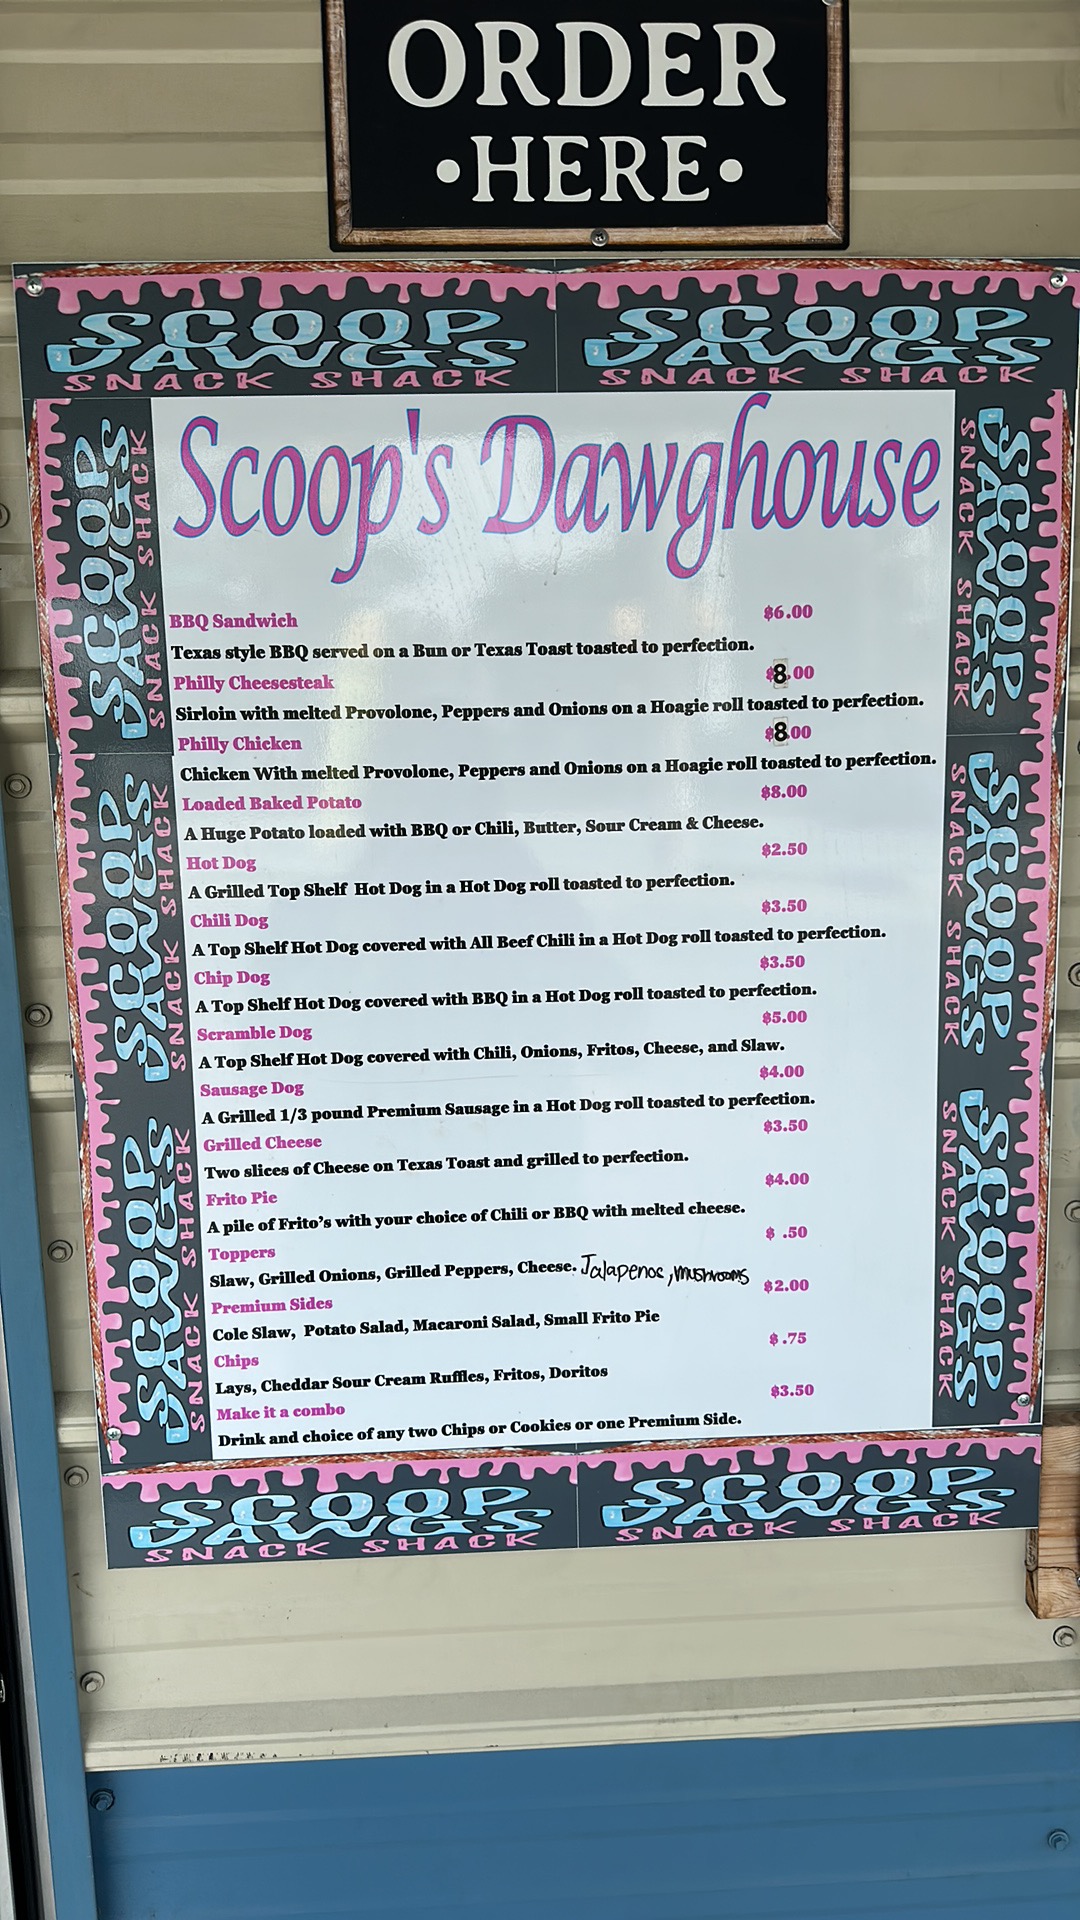 ORDER
•HERE•
SCOOP DAWGS SNACK SHACK
SCOOP DAWGS SNACK SHACK
Scoop's Dawghouse
BBQ Sandwich $6.00
Texas style BBQ served on a Bun or Texas Toast toasted to perfection.
Philly Cheesesteak $8.00
Sirloin with melted Provolone, Peppers and Onions on a Hoagie roll toasted to perfection.
Philly Chicken $8.00
Chicken With melted Provolone, Peppers and Onions on a Hoagie roll toasted to perfection.
Loaded Baked Potato $8.00
A Huge Potato loaded with BBQ or Chili, Butter, Sour Cream & Cheese.
Hot Dog $2.50
A Grilled Top Shelf Hot Dog in a Hot Dog roll toasted to perfection.
Chili Dog $3.50
A Top Shelf Hot Dog covered with All Beef Chili in a Hot Dog roll toasted to perfection.
Chip Dog $3.50
A Top Shelf Hot Dog covered with BBQ in a Hot Dog roll toasted to perfection.
Scramble Dog $5.00
A Top Shelf Hot Dog covered with Chili, Onions, Fritos, Cheese, and Slaw.
Sausage Dog $4.00
A Grilled 1/3 pound Premium Sausage in a Hot Dog roll toasted to perfection.
Grilled Cheese $3.50
Two slices of Cheese on Texas Toast and grilled to perfection.
Frito Pie $4.00
A pile of Frito's with your choice of Chili or BBQ with melted cheese.
Toppers $ .50
Slaw, Grilled Onions, Grilled Peppers, Cheese. Jalapenos, mushrooms
Premium Sides $2.00
Cole Slaw, Potato Salad, Macaroni Salad, Small Frito Pie
Chips $ .75
Lays, Cheddar Sour Cream Ruffles, Fritos, Doritos
Make it a combo $3.50
Drink and choice of any two Chips or Cookies or one Premium Side.
SCOOP DAWGS SNACK SHACK
SCOOP DAWGS SNACK SHACK
SCOOP DAWGS SNACK SHACK
SCOOP DAWGS SNACK SHACK
SCOOP DAWGS SNACK SHACK
SCOOP DAWGS SNACK SHACK
SCOOP DAWGS SNACK SHACK
SCOOP DAWGS SNACK SHACK